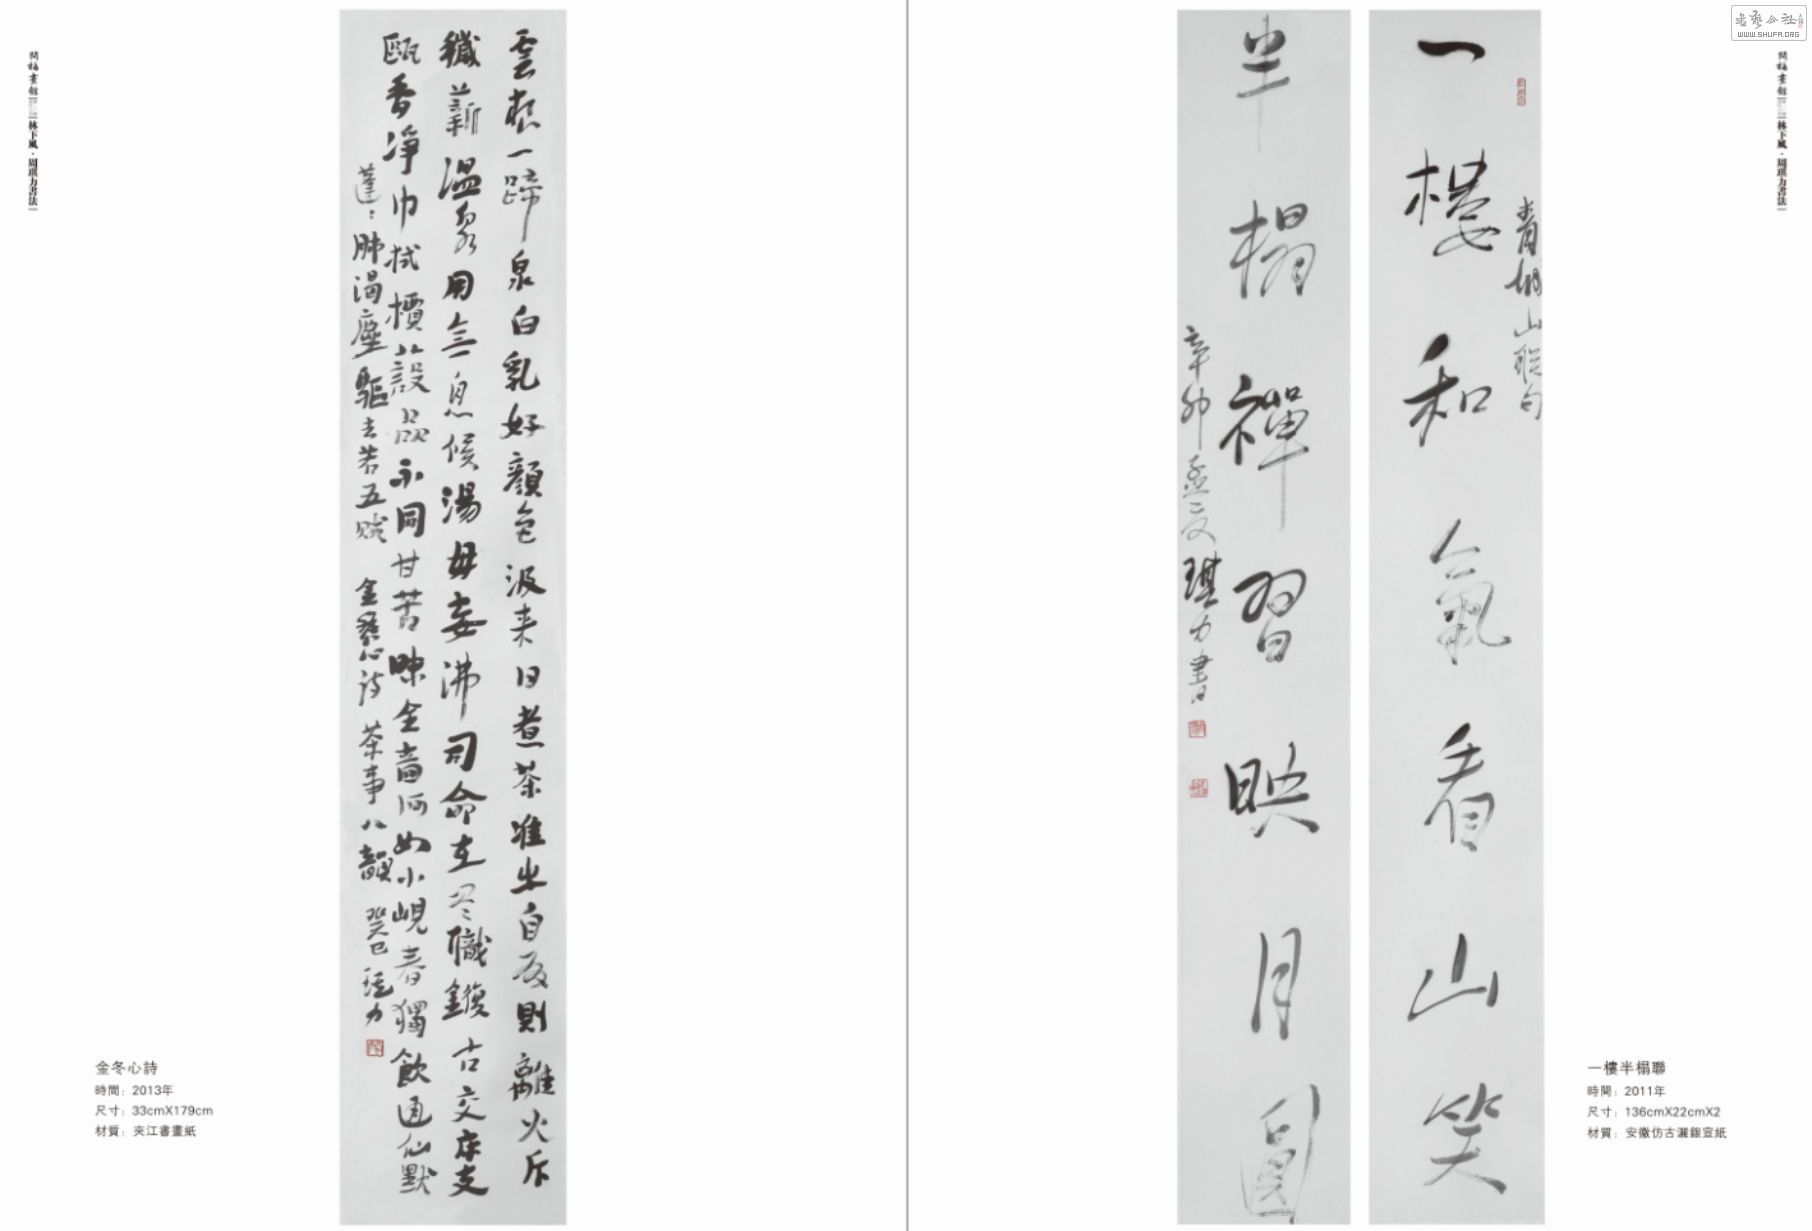 林下風·周琪力書法
雲根一蹄泉白乳好顏色汲来日煮茶准出自則離火斥
穢薪溫用無息候湯毋妄沸司命在冬職鑊古交床支
甌香淨巾拭檟設品不同甘苦味全嗇河如小峴春獨飲通仙默
蓬〻肺渴塵驅去若五賊 金冬心詩 茶事八韻 癸巳琪力
金冬心詩
時間：2013年
尺寸：33cmX179cm
材質：夾江書畫紙
一樓和氣看山笑
青城山聯句
半榻禪習映月圓
辛卯孟夏琪力書
一樓半榻聯
時間：2011年
尺寸：136cmX22cmX2
材質：安徽仿古灑銀宣紙
林下風·周琪力書法
書藝公社
WWW.SHUFA.ORG